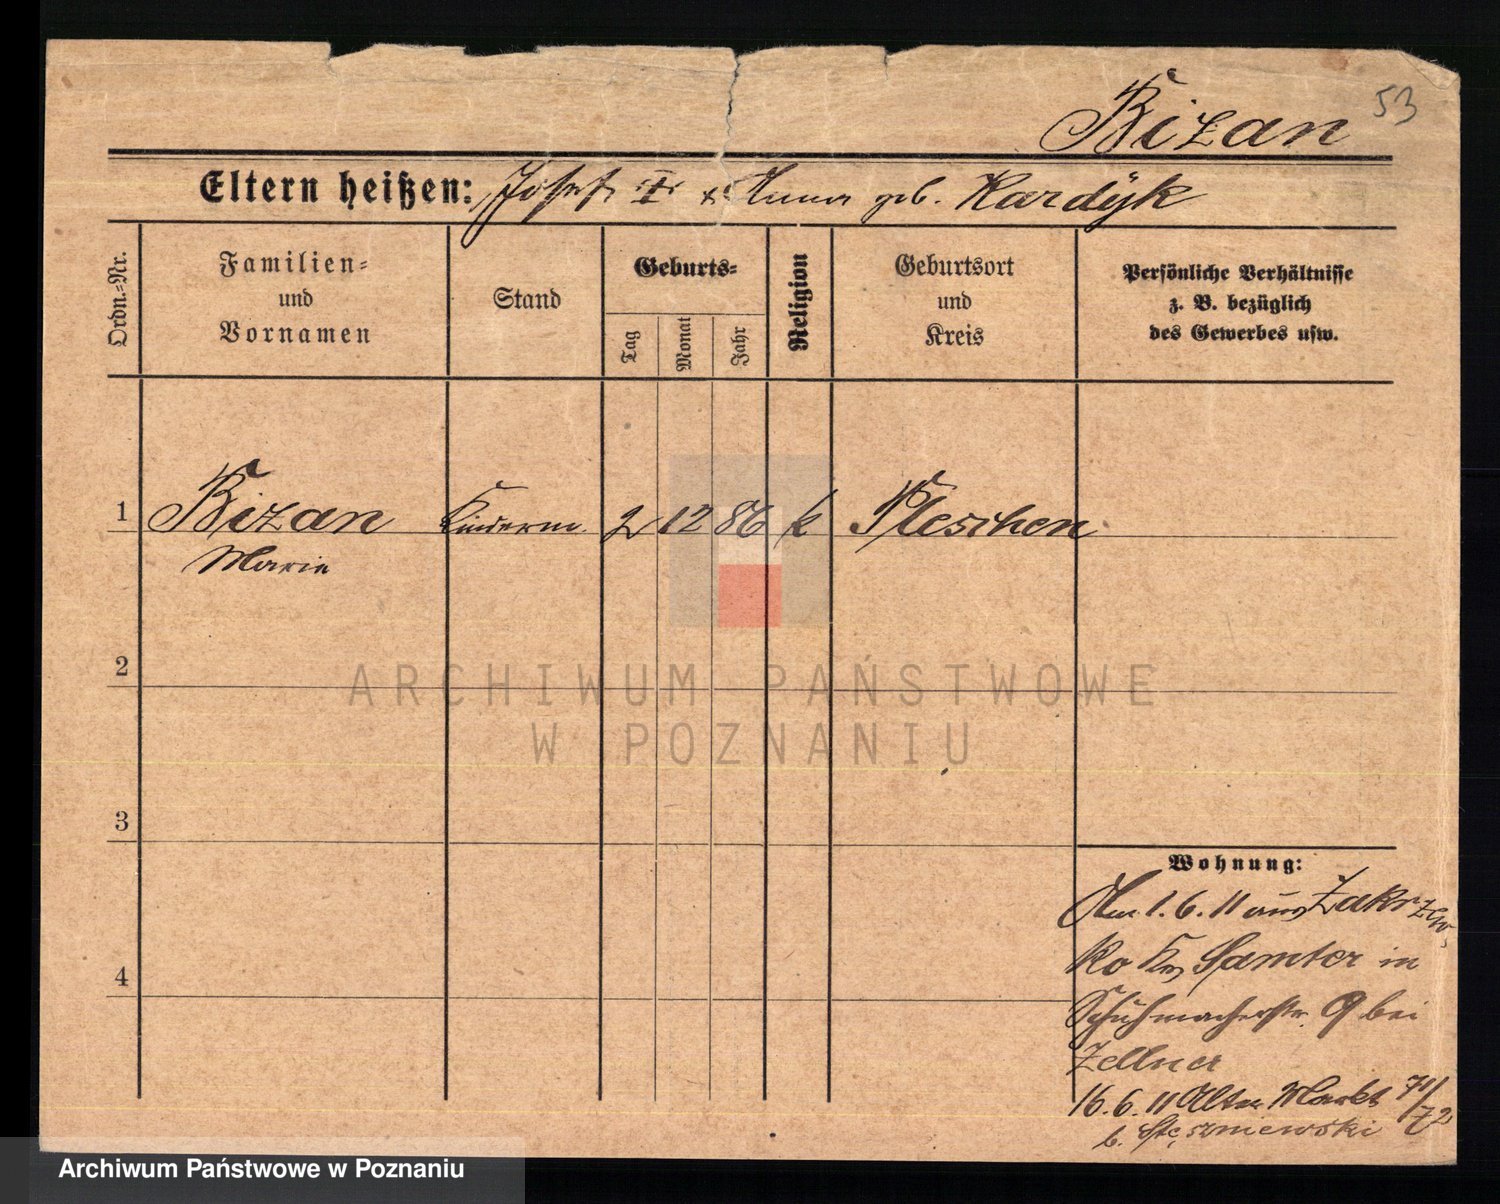 53
Bizan
Eltern heißen: Josef I u. Anna geb. Kardÿk
Ordn.=Nr.
Familien=
und
Vornamen
Stand
Geburts=
Tag
Monat
Jahr
Religion
Geburtsort
und
Kreis
Persönliche Verhältnisse
z. B. bezüglich
des Gewerbes usw.
1 Bizan Kinderm. 2 12 86 k Pleschen
Marie
2
3
4
Wohnung:
Am 1.6.11 aus Zakrzew-
ko Krs Samter in
Schuhmacherstr. 9 bei
Zellner
16.6.11 Alter Markt 71/72
b. Stęszniewski
ARCHIWUM PAŃSTWOWE
W POZNANIU
Archiwum Państwowe w Poznaniu